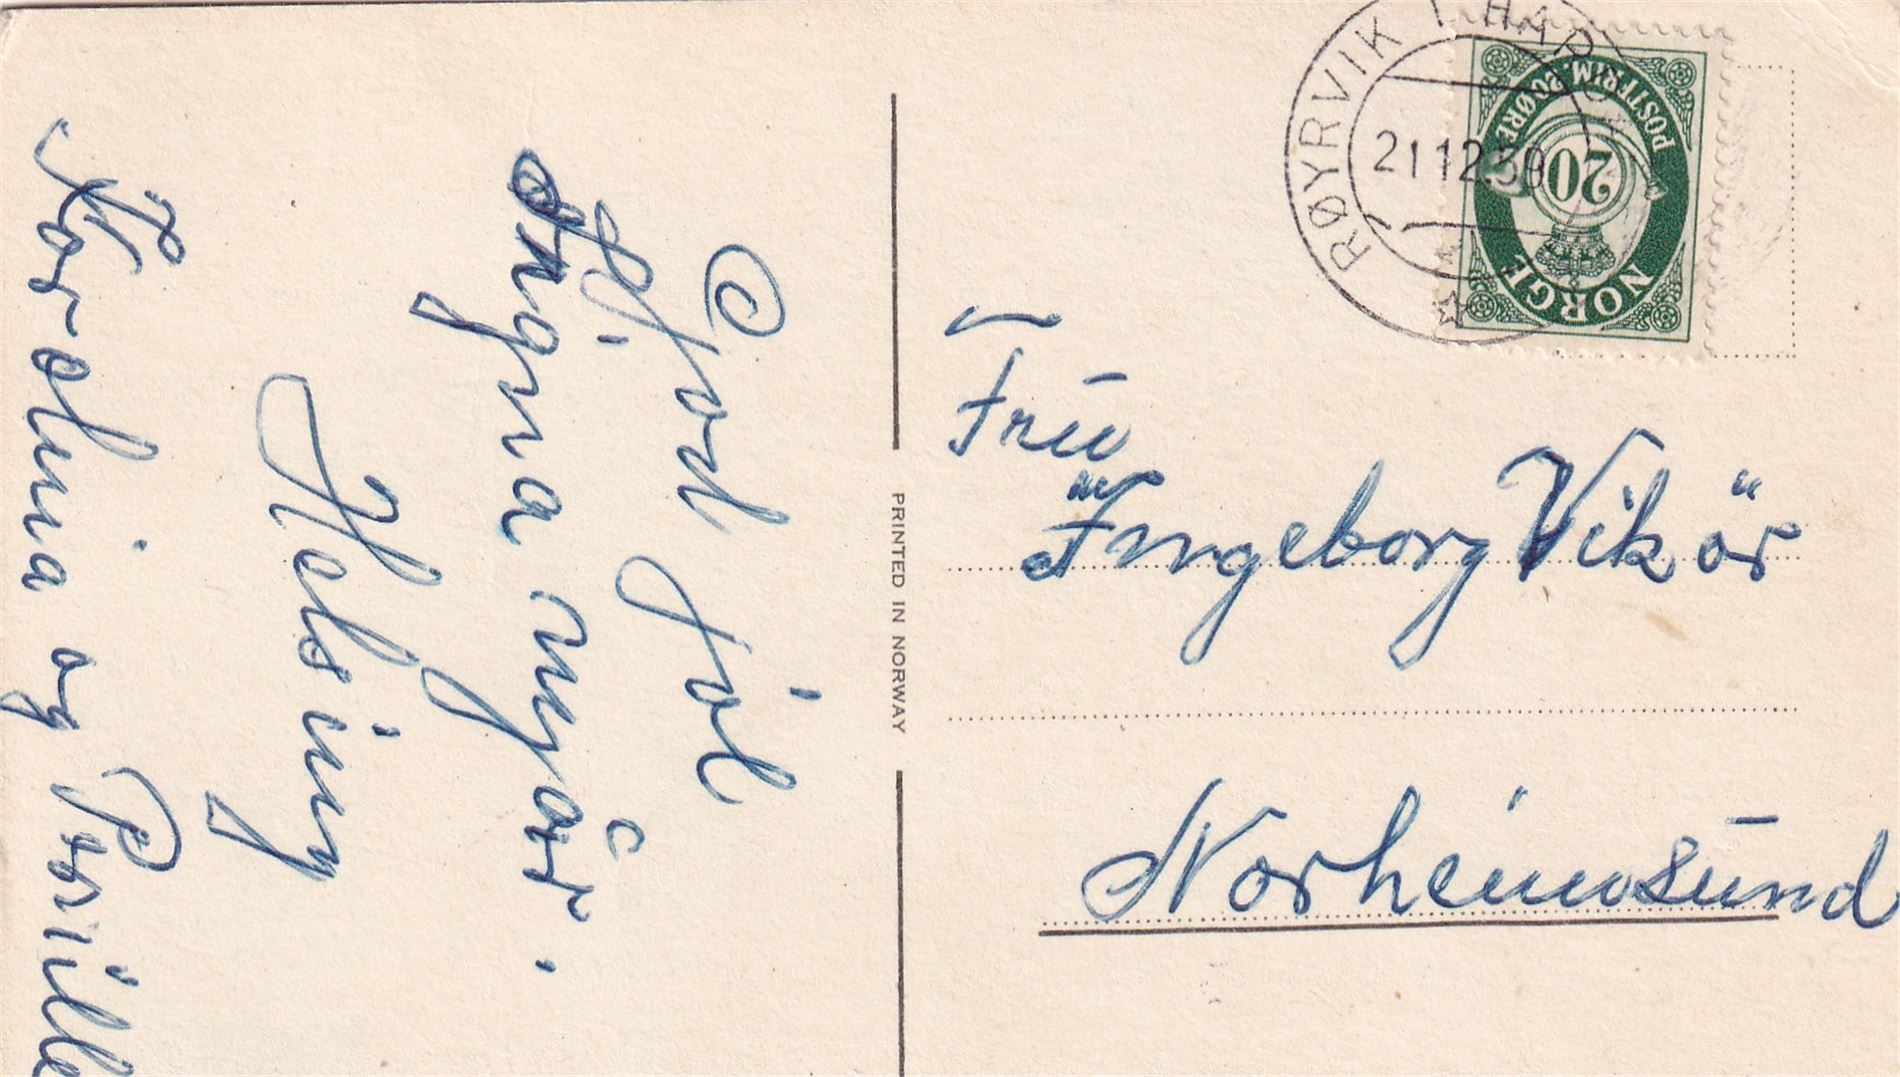 God jól
Signa nyår.
Helsing
og Pernille
PRINTED IN NORWAY
RØYRVIK I HARD
21 12.39
NORGE
POSTFRIM. 20 ØRE
20
Frū
Ingeborg Vikör
Norheimsūnd